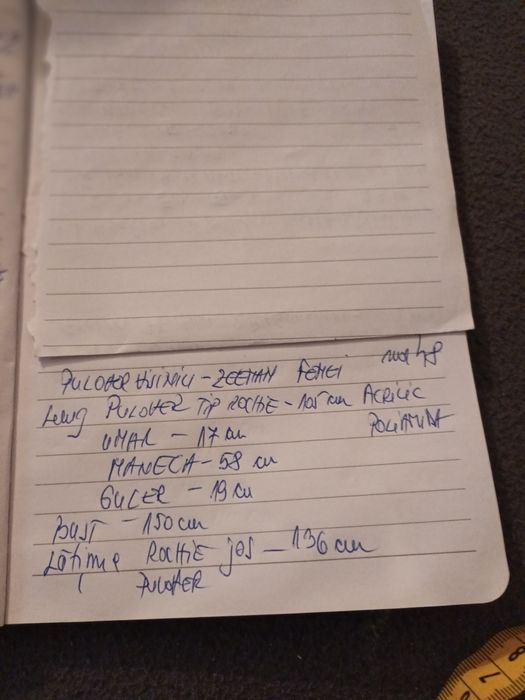 PULOVER VISINIU - ZEEMAN FEMEI
Lung PULOVER TIP ROCHIE - 105 cm ACRILIC
UMAR - 17 cm POLIAMIDA
MANECA - 58 cm
GULER - 19 cm
BUST - 150 cm
Lățime ROCHIE jos - 136 cm
PULOVER
7 8